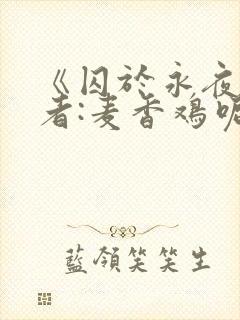 《囚於永夜
者:麦香鸡呢
藍領笑笑生